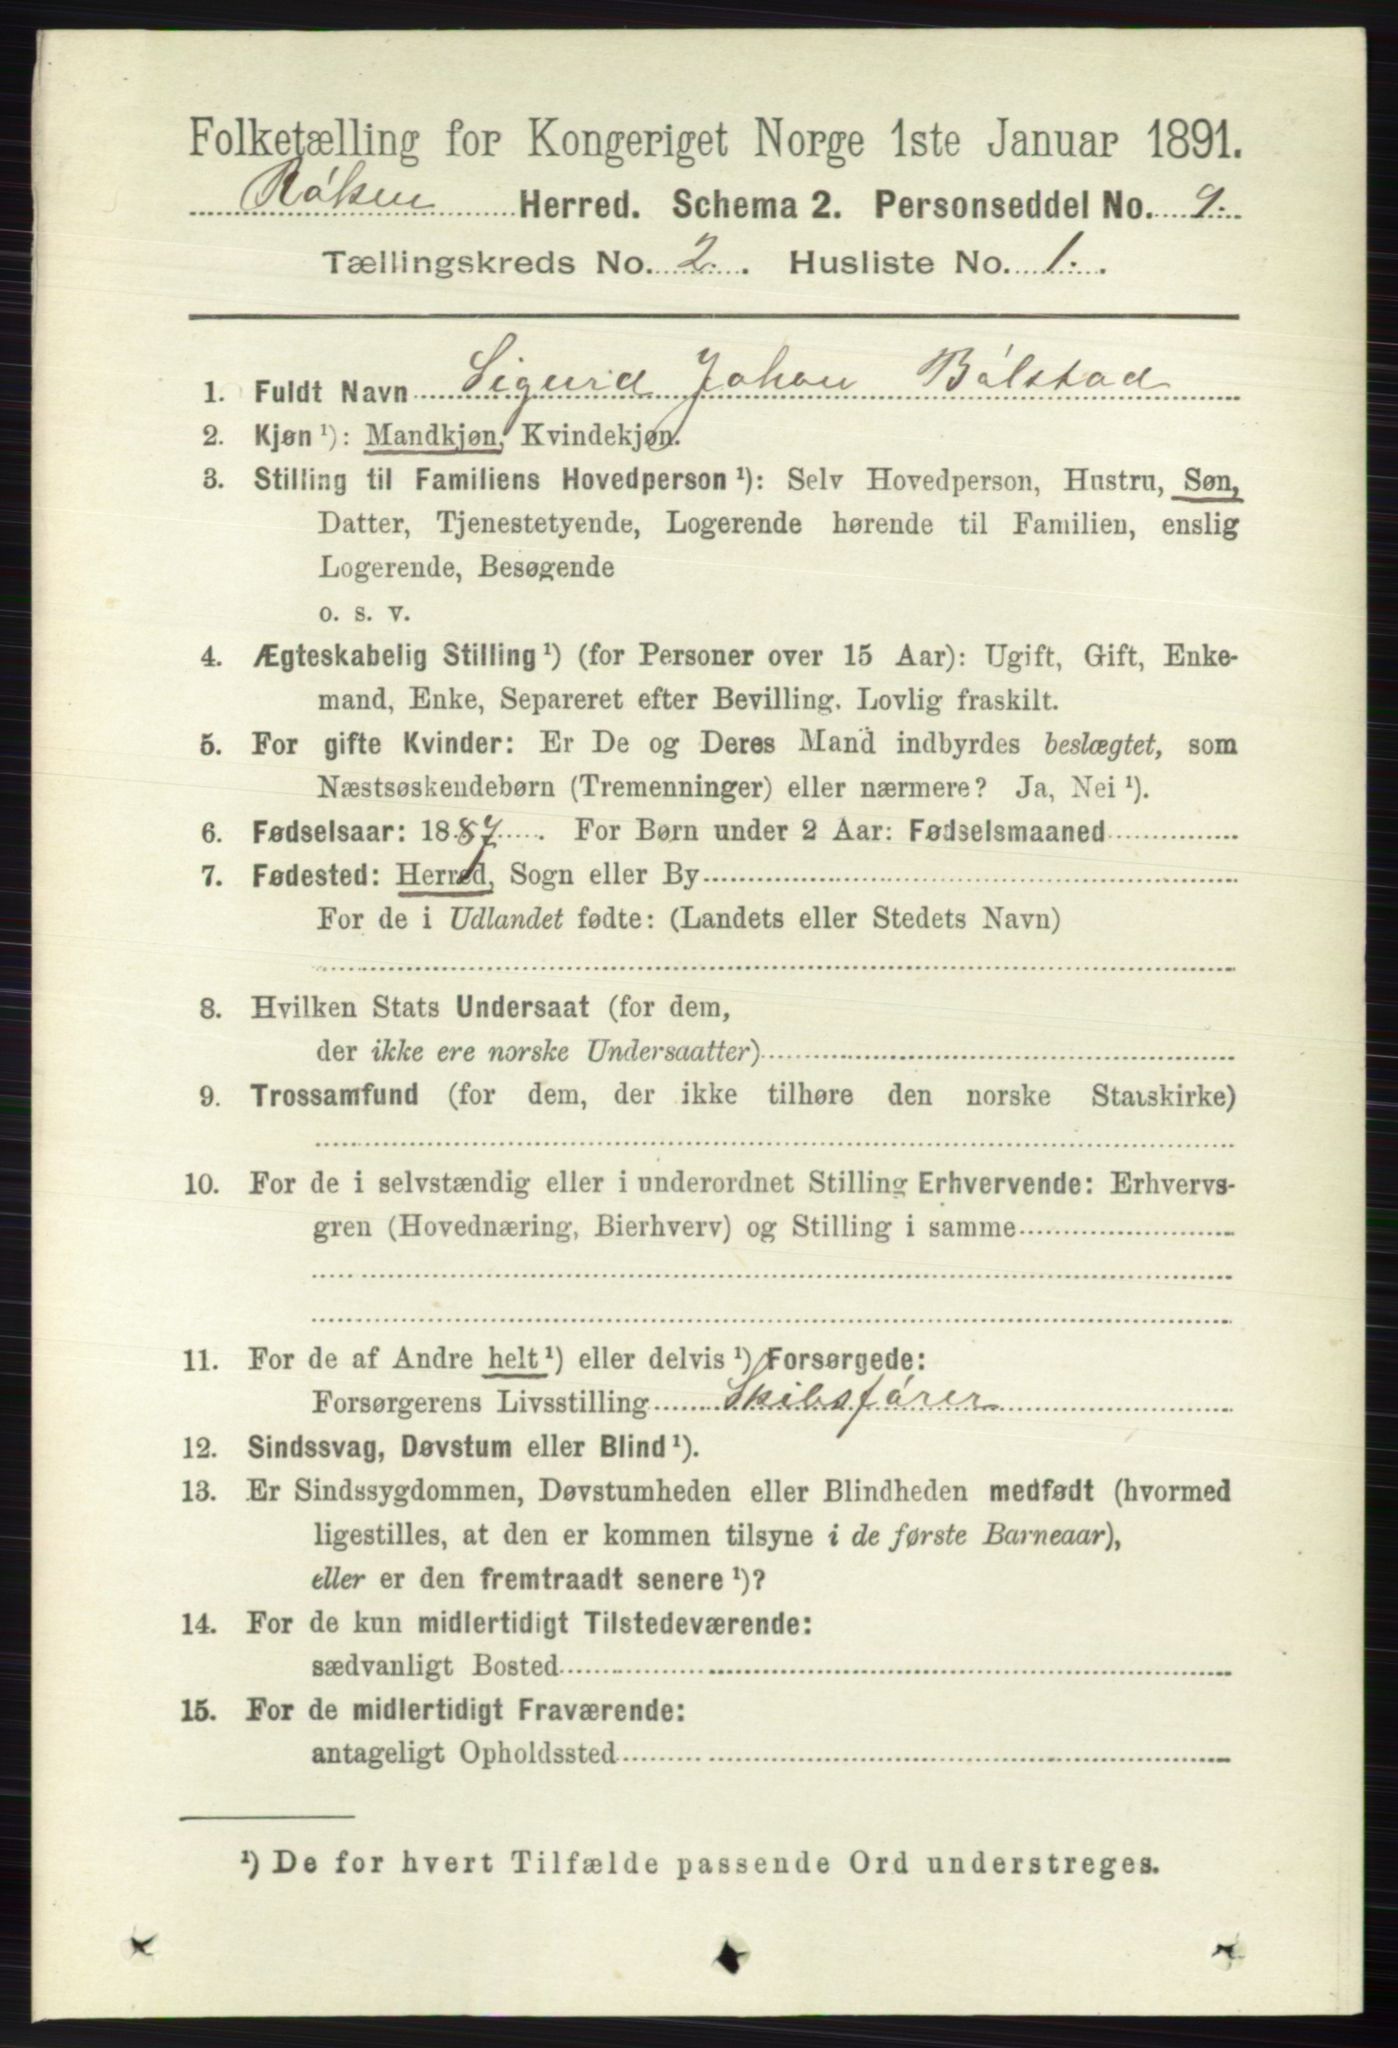 Folketælling for Kongeriget Norge 1ste Januar 1891.
Røken Herred. Schema 2. Personseddel No. 9.
Tællingskreds No. 2. Husliste No. 1.
1. Fuldt Navn Sigurd Johan Bølstad
2. Kjøn ¹): Mandkjøn, Kvindekjøn.
3. Stilling til Familiens Hovedperson ¹): Selv Hovedperson, Hustru, Søn,
Datter, Tjenestetyende, Logerende hørende til Familien, enslig
Logerende, Besøgende
o. s. v.
4. Ægteskabelig Stilling ¹) (for Personer over 15 Aar): Ugift, Gift, Enke-
mand, Enke, Separeret efter Bevilling. Lovlig fraskilt.
5. For gifte Kvinder: Er De og Deres Mand indbyrdes beslægtet, som
Næstsøskendebørn (Tremenninger) eller nærmere? Ja, Nei ¹).
6. Fødselsaar: 1887. For Børn under 2 Aar: Fødselsmaaned
7. Fødested: Herred, Sogn eller By
For de i Udlandet fødte: (Landets eller Stedets Navn)
8. Hvilken Stats Undersaat (for dem,
der ikke ere norske Undersaatter)
9. Trossamfund (for dem, der ikke tilhøre den norske Statskirke)
10. For de i selvstændig eller i underordnet Stilling Erhvervende: Erhvervs-
gren (Hovednæring, Bierhverv) og Stilling i samme
11. For de af Andre helt ¹) eller delvis ¹) Forsørgede:
Forsørgerens Livsstilling Skibsfører
12. Sindssvag, Døvstum eller Blind ¹).
13. Er Sindssygdommen, Døvstumheden eller Blindheden medfødt (hvormed
ligestilles, at den er kommen tilsyne i de første Barneaar),
eller er den fremtraadt senere ¹)?
14. For de kun midlertidigt Tilstedeværende:
sædvanligt Bosted
15. For de midlertidigt Fraværende:
antageligt Opholdssted
¹) De for hvert Tilfælde passende Ord understreges.